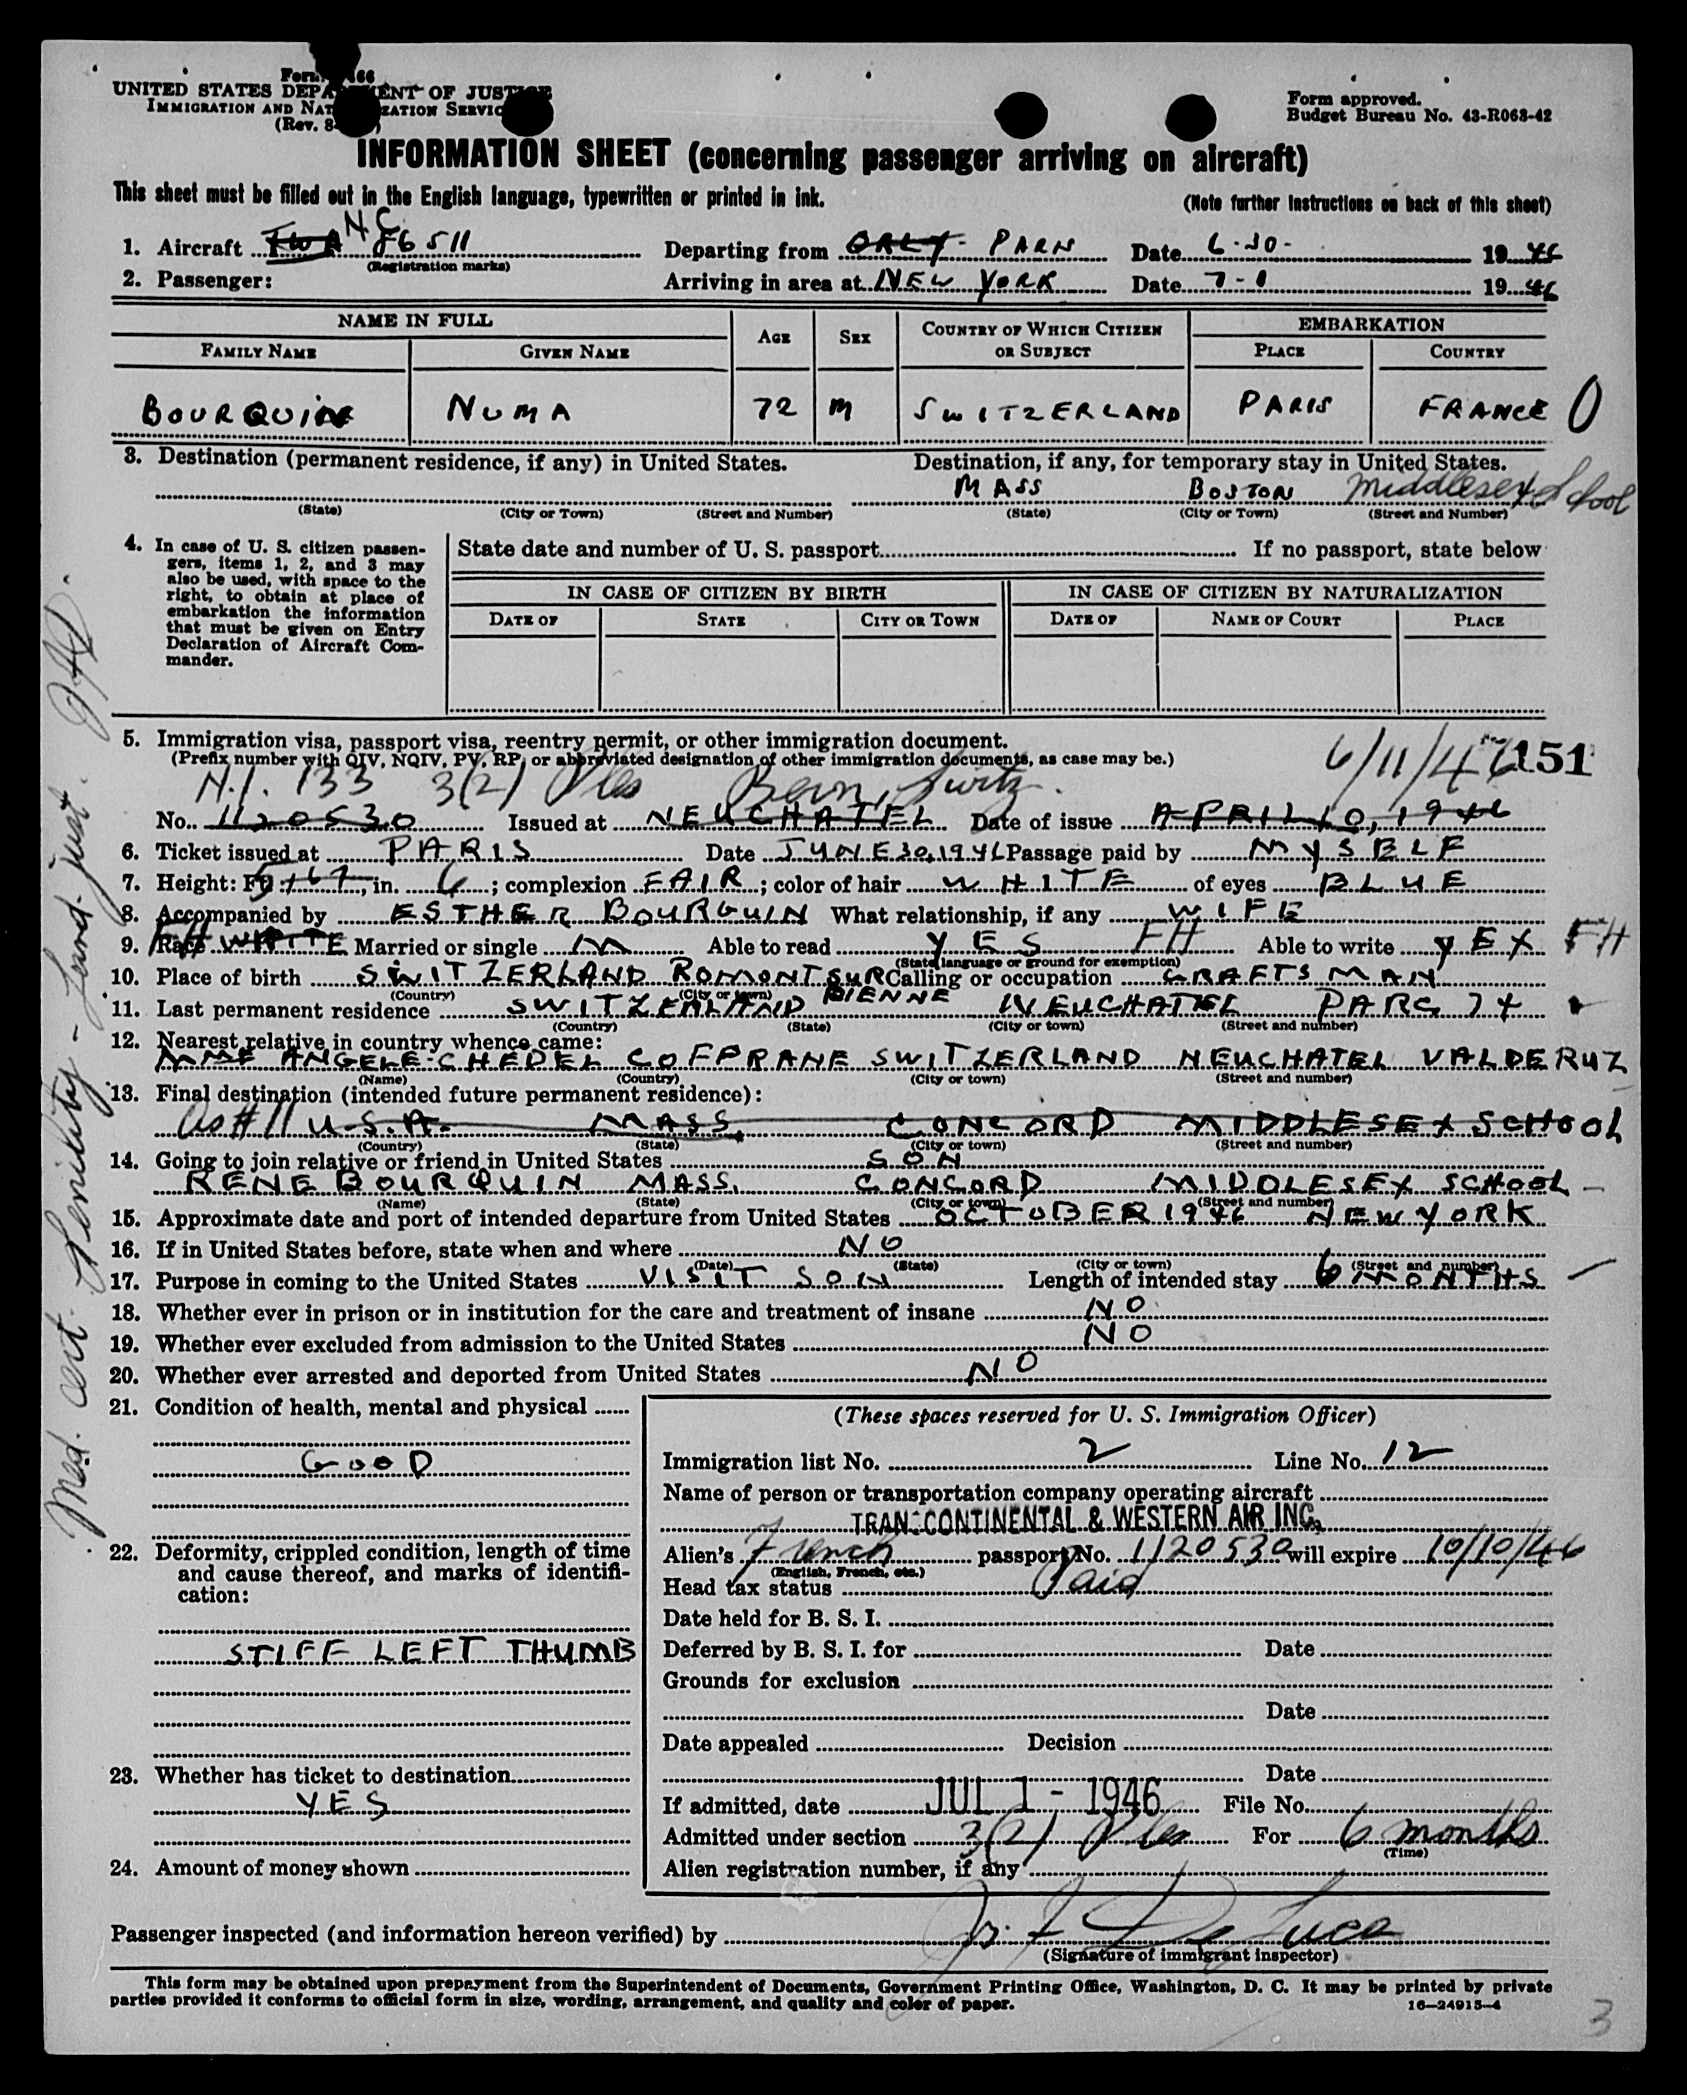 UNITED STATES DEPARTMENT OF JUSTICE
IMMIGRATION AND NATURALIZATION SERVICE
(Rev. 8-
Form approved.
Budget Bureau No. 43-R068-42
INFORMATION SHEET (concerning passenger arriving on aircraft)
This sheet must be filled out in the English language, typewritten or printed in ink.
(Note further instructions on back of this sheet)
1. Aircraft TWA NC 86511 Departing from ORLY - PARIS Date 6-30- 1946
(Registration marks)
2. Passenger: Arriving in area at NEW YORK Date 7-1 1946
NAME IN FULL AGE SEX COUNTRY OF WHICH CITIZEN OR SUBJECT EMBARKATION
FAMILY NAME GIVEN NAME PLACE COUNTRY
BOURQUIN NUMA 72 M SWITZERLAND PARIS FRANCE 0
3. Destination (permanent residence, if any) in United States. Destination, if any, for temporary stay in United States.
MASS BOSTON Middlesex School
(State) (City or Town) (Street and Number) (State) (City or Town) (Street and Number)
4. In case of U. S. citizen passengers, items 1, 2, and 3 may also be used, with space to the right, to obtain at place of embarkation the information that must be given on Entry Declaration of Aircraft Commander.
State date and number of U. S. passport If no passport, state below
IN CASE OF CITIZEN BY BIRTH IN CASE OF CITIZEN BY NATURALIZATION
DATE OF STATE CITY OR TOWN DATE OF NAME OF COURT PLACE
5. Immigration visa, passport visa, reentry permit, or other immigration document.
(Prefix number with QIV, NQIV, PV, RP, or abbreviated designation of other immigration documents, as case may be.)
N.I. 133 3(2) Bern, Switz. 6/11/46 151
No. 1120530 Issued at NEUCHATEL Date of issue APRIL 10, 1946
6. Ticket issued at PARIS Date JUNE 30, 1946 Passage paid by MYSELF
7. Height: Ft. in. 6; complexion FAIR; color of hair WHITE of eyes BLUE
8. Accompanied by ESTHER BOURQUIN What relationship, if any WIFE
9. Race WHITE FH Married or single M Able to read YES FH Able to write YEX FH
(State language or ground for exemption)
10. Place of birth SWITZERLAND ROMONT SUR BIENNE Calling or occupation CRAFTSMAN
(Country) (City or town)
11. Last permanent residence SWITZERLAND NEUCHATEL PARC 74
(Country) (State) (City or town) (Street and number)
12. Nearest relative in country whence came:
MME ANGELE CHEDEL COFFRANE SWITZERLAND NEUCHATEL VALDERUZ
(Name) (Country) (City or town) (Street and number)
13. Final destination (intended future permanent residence):
as #11 U.S.A. MASS. CONCORD MIDDLESEX SCHOOL
(Country) (State) (City or town) (Street and number)
14. Going to join relative or friend in United States SON
RENE BOURQUIN MASS. CONCORD MIDDLESEX SCHOOL -
(Name) (State) (City or town) (Street and number)
15. Approximate date and port of intended departure from United States OCTOBER 1946 NEW YORK
16. If in United States before, state when and where NO
(Date) (State) (City or town) (Street and number)
17. Purpose in coming to the United States VISIT SON Length of intended stay 6 MONTHS
18. Whether ever in prison or in institution for the care and treatment of insane NO
19. Whether ever excluded from admission to the United States NO
20. Whether ever arrested and deported from United States NO
21. Condition of health, mental and physical
GOOD
22. Deformity, crippled condition, length of time and cause thereof, and marks of identification:
STIFF LEFT THUMB
23. Whether has ticket to destination
YES
24. Amount of money shown
(These spaces reserved for U. S. Immigration Officer)
Immigration list No. 2 Line No. 12
Name of person or transportation company operating aircraft
TRANSCONTINENTAL & WESTERN AIR INC.
Alien's French passport No. 1120530 will expire 10/10/46
(English, French, etc.)
Head tax status Paid
Date held for B. S. I.
Deferred by B. S. I. for Date
Grounds for exclusion
Date
Date appealed Decision
Date
If admitted, date JUL 1 - 1946 File No.
Admitted under section 3(2) For 6 months
(Time)
Alien registration number, if any
Passenger inspected (and information hereon verified) by De Luca
(Signature of immigrant inspector)
This form may be obtained upon prepayment from the Superintendent of Documents, Government Printing Office, Washington, D. C. It may be printed by private
parties provided it conforms to official form in size, wording, arrangement, and quality and color of paper.
16—24915-4
3
Med. cert. Senility -